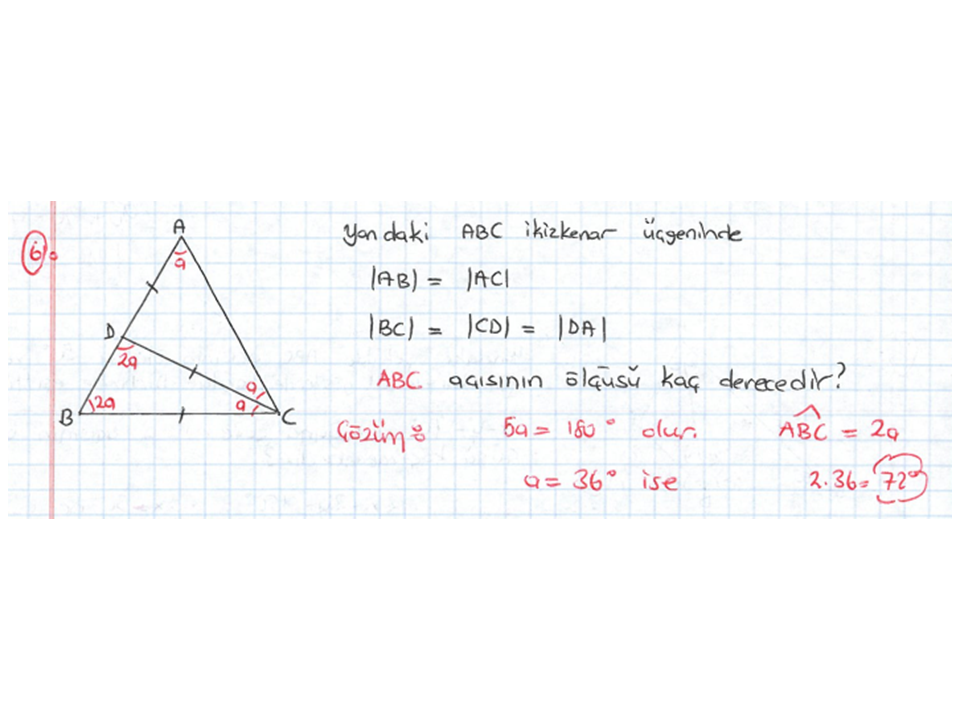 6.
A
a
D
2a
a
B 2a a C
Yandaki ABC ikizkenar üçgeninde
|AB| = |AC|
|BC| = |CD| = |DA|
ABC açısının ölçüsü kaç derecedir?
Çözüm: 5a = 180° olur. ABC = 2a
a = 36° ise 2.36 = 72°